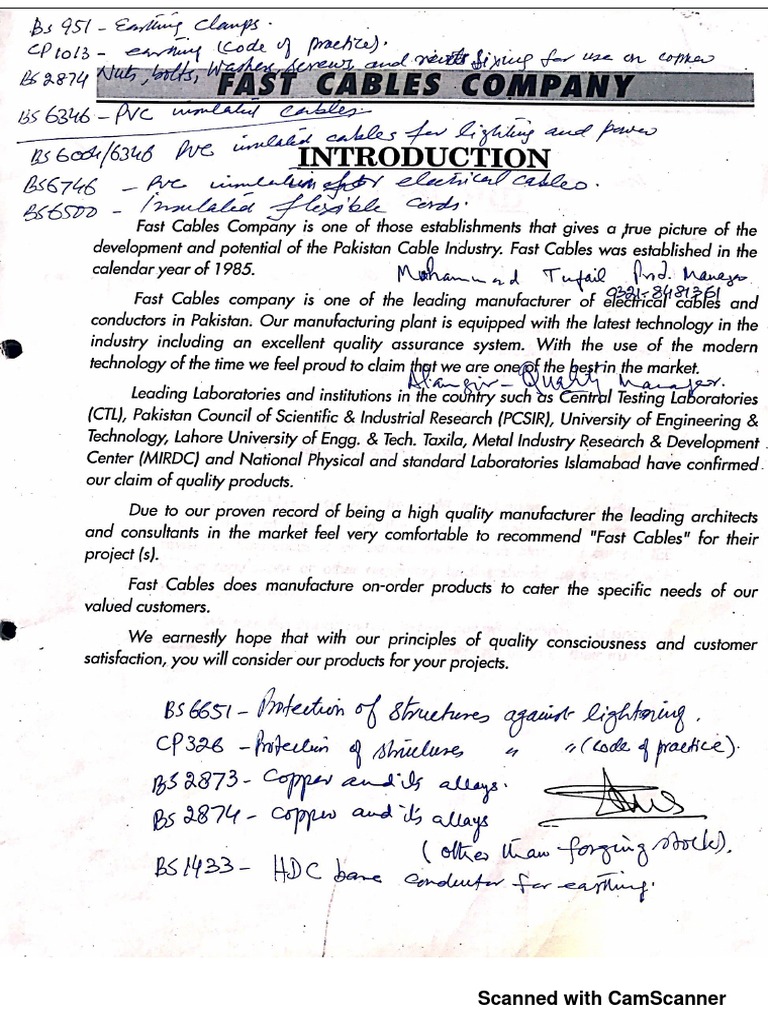 BS 951 - Earthing Clamps.
CP1013 - earthing (Code of practice).
BS 2874 Nuts, bolts, Washers, screws and rivets fixing for use on copper
FAST CABLES COMPANY
BS 6346 - PVC insulated cables
BS 6004/6346 PVC insulated cables for lighting and power
INTRODUCTION
BS6746 - PVC insulation of electrical cables.
BS6500 - Insulated flexible cords.
Fast Cables Company is one of those establishments that gives a true picture of the
development and potential of the Pakistan Cable Industry. Fast Cables was established in the
calendar year of 1985.
Mohammad Tufail Prod. Manager
0321-8481361
Fast Cables company is one of the leading manufacturer of electrical cables and
conductors in Pakistan. Our manufacturing plant is equipped with the latest technology in the
industry including an excellent quality assurance system. With the use of the modern
technology of the time we feel proud to claim that we are one of the best in the market.
Alamgir - Quality Manager.
Leading Laboratories and institutions in the country such as Central Testing Laboratories
(CTL), Pakistan Council of Scientific & Industrial Research (PCSIR), University of Engineering &
Technology, Lahore University of Engg. & Tech. Taxila, Metal Industry Research & Development
Center (MIRDC) and National Physical and standard Laboratories Islamabad have confirmed
our claim of quality products.
Due to our proven record of being a high quality manufacturer the leading architects
and consultants in the market feel very comfortable to recommend "Fast Cables" for their
project (s).
Fast Cables does manufacture on-order products to cater the specific needs of our
valued customers.
We earnestly hope that with our principles of quality consciousness and customer
satisfaction, you will consider our products for your projects.
BS6651 - Protection of structures against lightening.
CP326 - Protection of structures " " (Code of practice).
BS 2873 - Copper and its alloys.
BS 2874 - Copper and its alloys
(other than forging stock).
BS1433 - HDC bare conductor for earthing.
Scanned with CamScanner